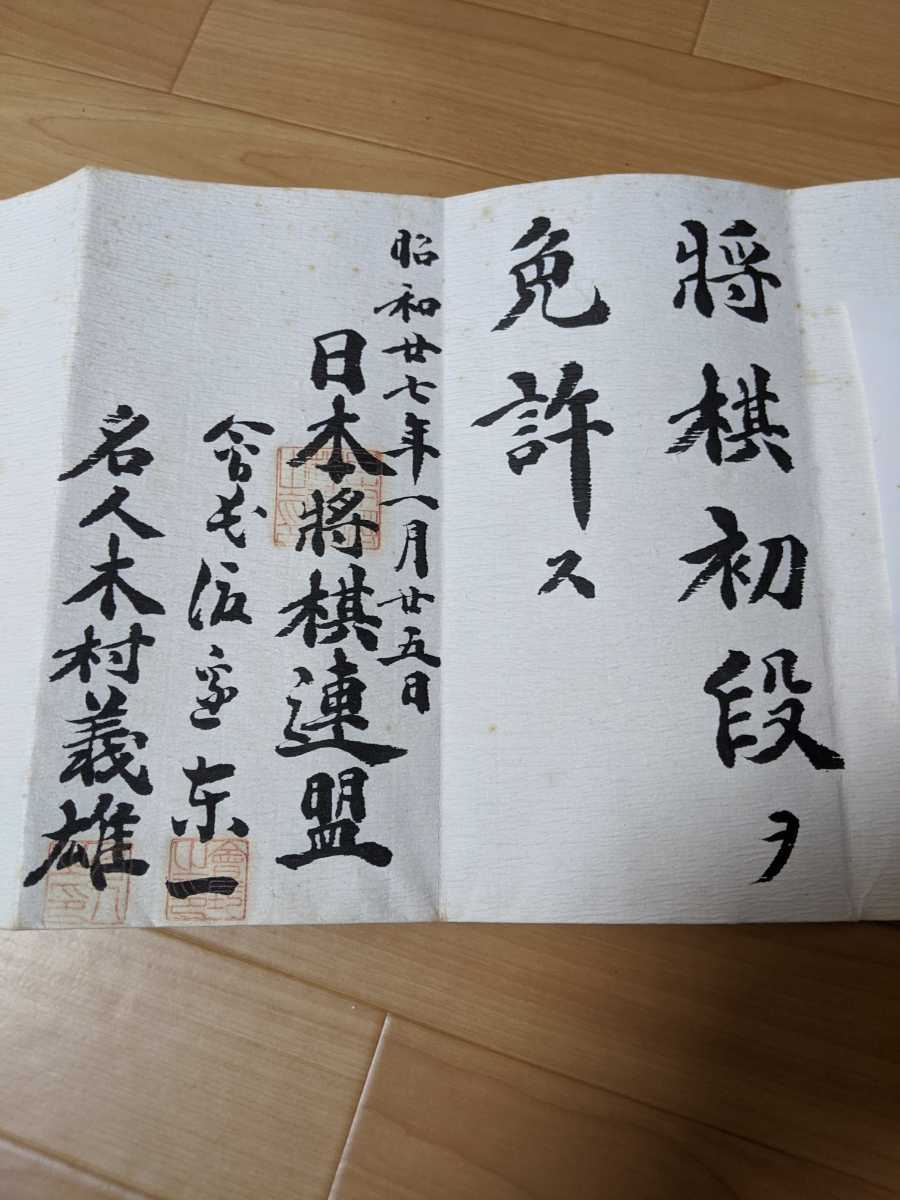 將棋初段ヲ
免許ス
昭和廿七年一月廿五日
日本將棋連盟
会長渡邊東一
名人木村義雄